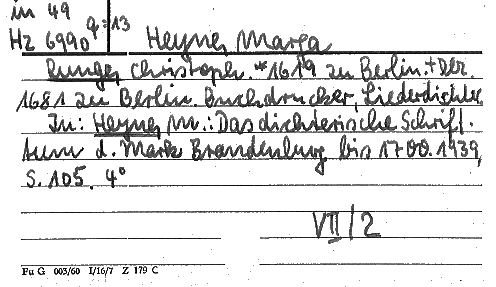 in 49
Hz 6990 q:13
Heyne, Marga
Runge, Christoph. *1619 zu Berlin. + Dez.
1681 zu Berlin. Buchdrucker, Liederdichter
In: Heyne, M.: Das dichterische Schrift-
tum d. Mark Brandenburg bis 1700. 1939,
S. 105. 4°
VII/2
Fu G 003/60 I/16/7 Z 179 C